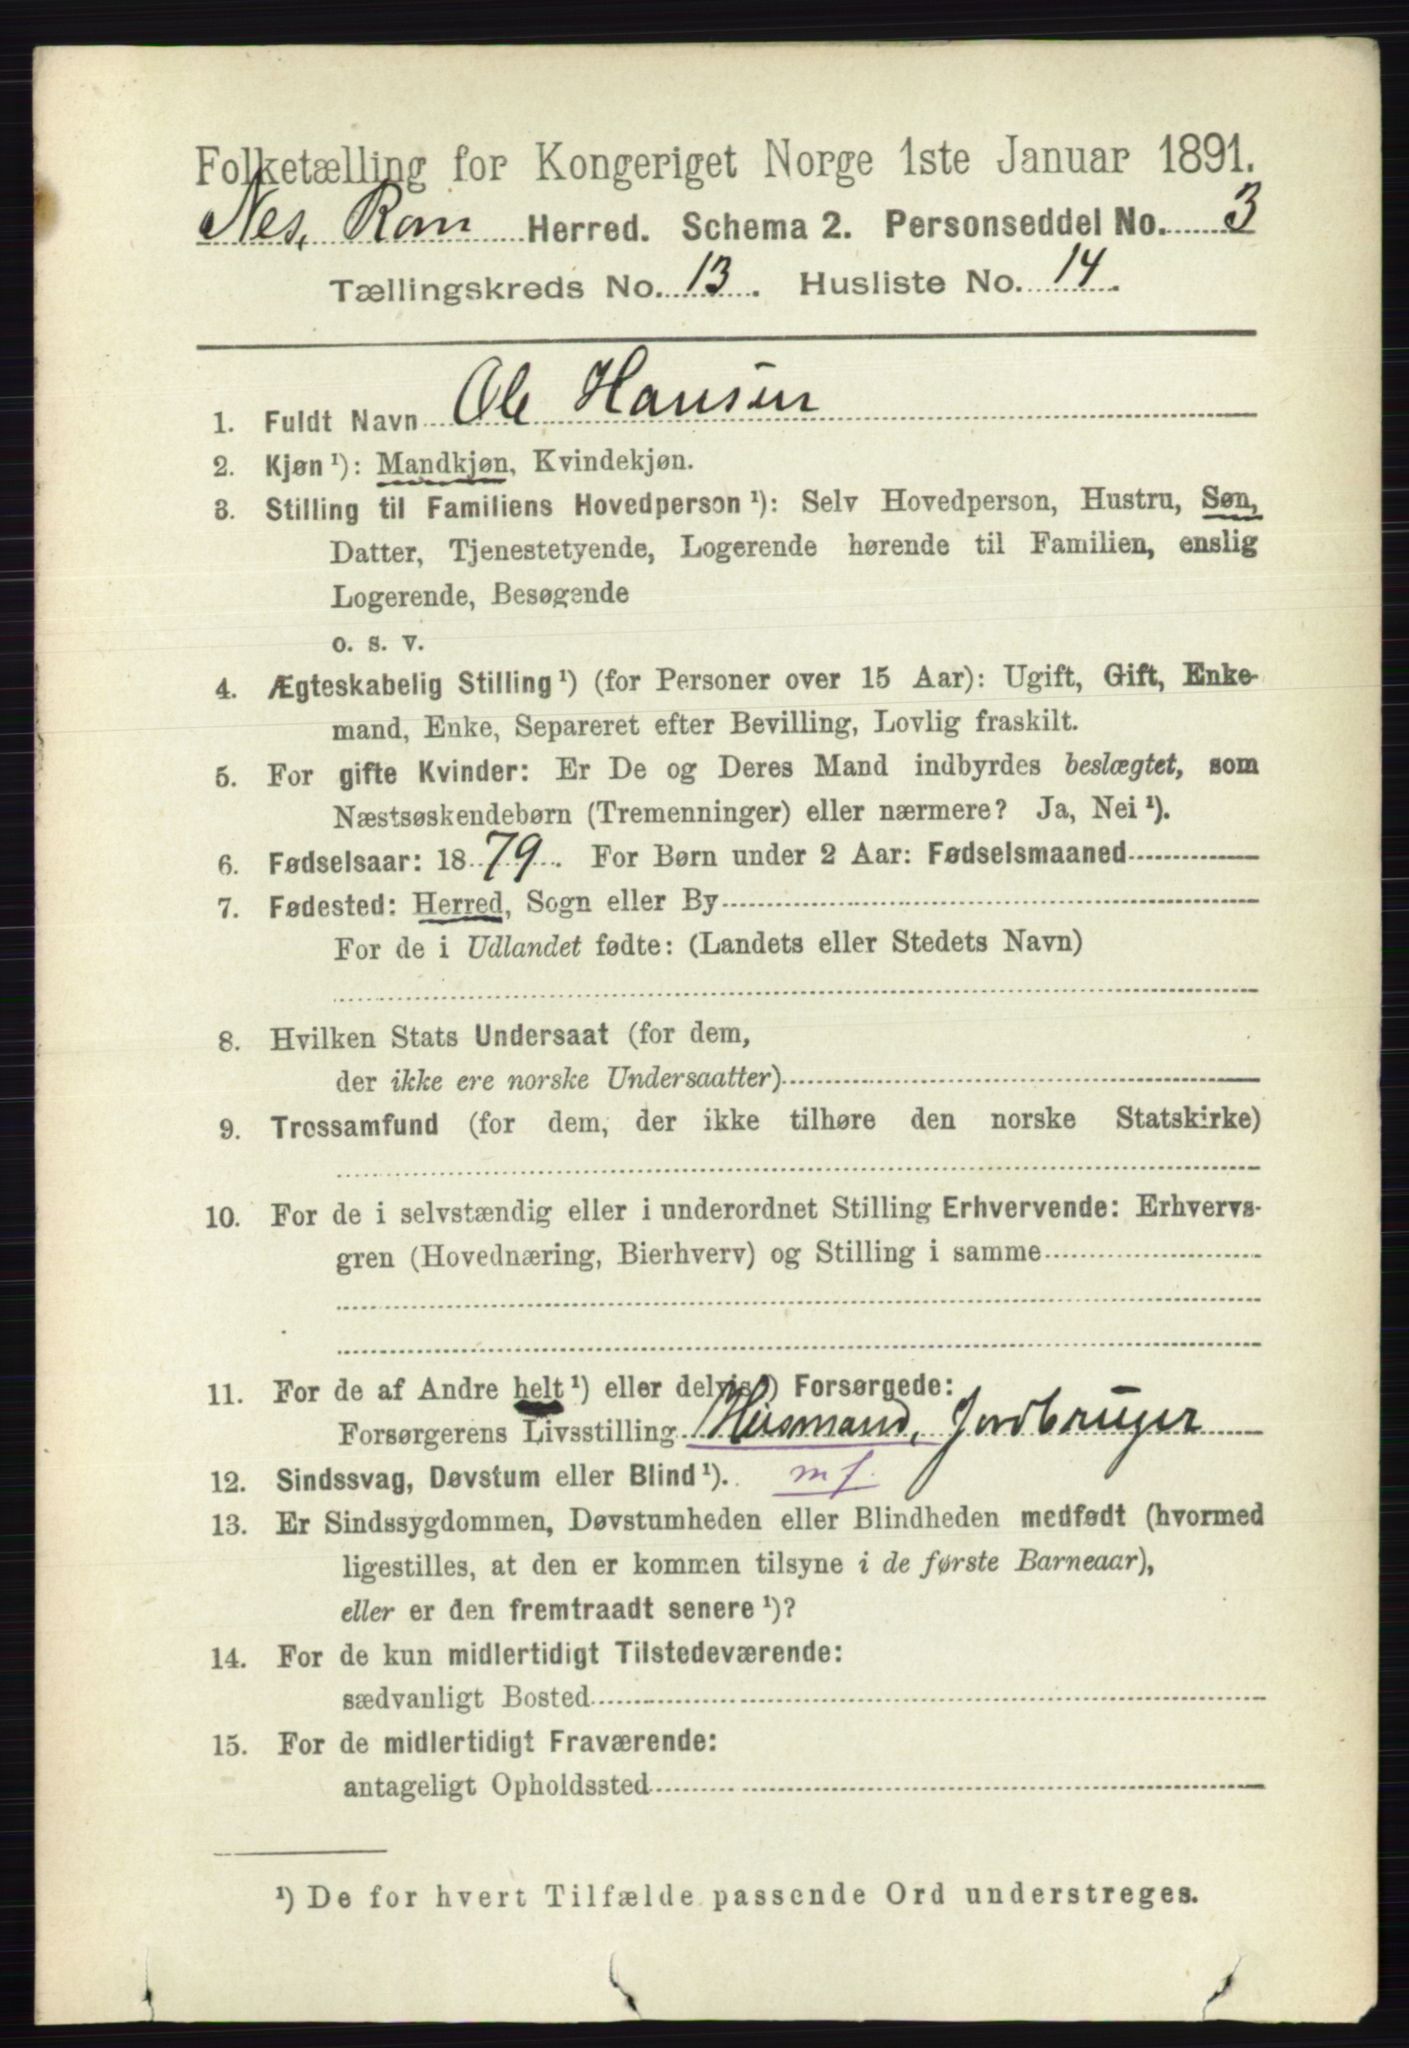 Folketælling for Kongeriget Norge 1ste Januar 1891.
Nes, Rom Herred. Schema 2. Personseddel No. 3
Tællingskreds No. 13. Husliste No. 14.
1. Fuldt Navn Ole Hansen
2. Kjøn ¹): Mandkjøn, Kvindekjøn.
3. Stilling til Familiens Hovedperson ¹): Selv Hovedperson, Hustru, Søn,
Datter, Tjenestetyende, Logerende hørende til Familien, enslig
Logerende, Besøgende
o. s. v.
4. Ægteskabelig Stilling ¹) (for Personer over 15 Aar): Ugift, Gift, Enke-
mand, Enke, Separeret efter Bevilling, Lovlig fraskilt.
5. For gifte Kvinder: Er De og Deres Mand indbyrdes beslægtet, som
Næstsøskendebørn (Tremenninger) eller nærmere? Ja, Nei ¹).
6. Fødselsaar: 1879. For Børn under 2 Aar: Fødselsmaaned
7. Fødested: Herred, Sogn eller By
For de i Udlandet fødte: (Landets eller Stedets Navn)
8. Hvilken Stats Undersaat (for dem,
der ikke ere norske Undersaatter)
9. Trossamfund (for dem, der ikke tilhøre den norske Statskirke)
10. For de i selvstændig eller i underordnet Stilling Erhvervende: Erhvervs-
gren (Hovednæring, Bierhverv) og Stilling i samme
11. For de af Andre helt ¹) eller delvis ¹) Forsørgede:
Forsørgerens Livsstilling Husmand, Jordbruger
12. Sindssvag, Døvstum eller Blind ¹). m f.
13. Er Sindssygdommen, Døvstumheden eller Blindheden medfødt (hvormed
ligestilles, at den er kommen tilsyne i de første Barneaar),
eller er den fremtraadt senere ¹)?
14. For de kun midlertidigt Tilstedeværende:
sædvanligt Bosted
15. For de midlertidigt Fraværende:
antageligt Opholdssted
¹) De for hvert Tilfælde passende Ord understreges.